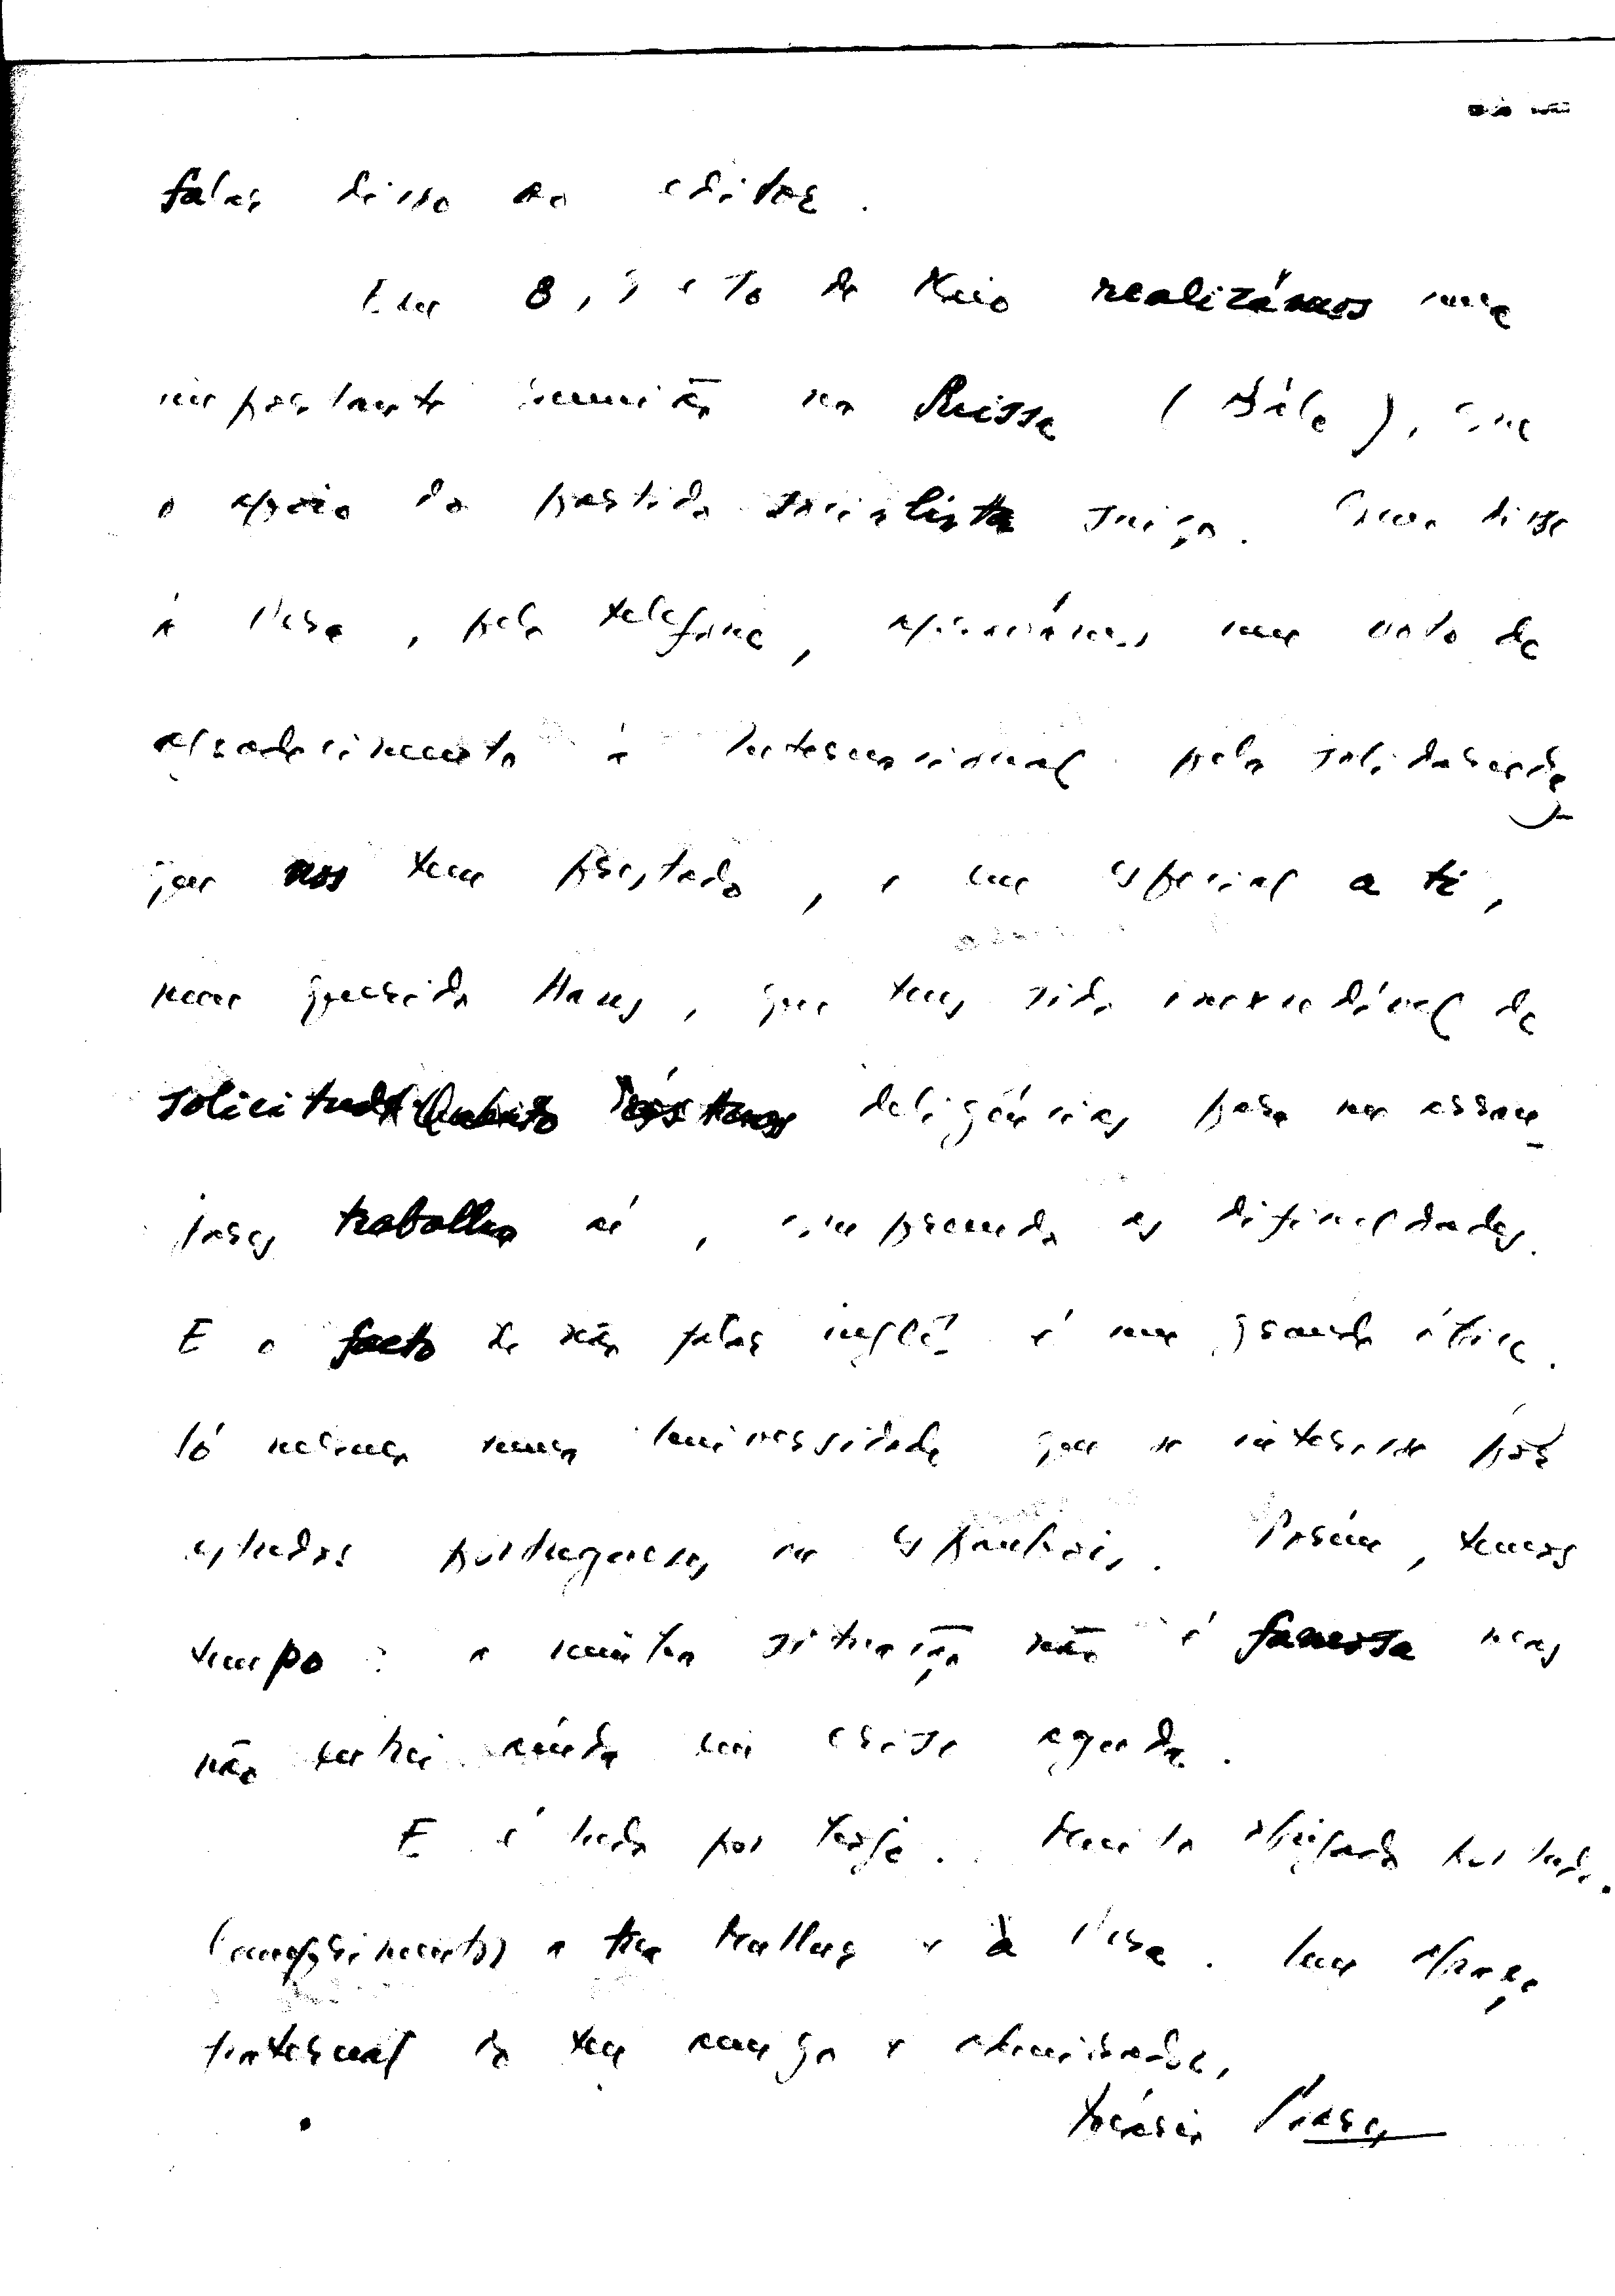 falar disso ao editor.
Em 8, 9 e 10 de Maio realizámos uma
importante reunião na Suissa (Bâle), com
o apoio do partido socialista suiço. Como disse
à Vera, pelo telefone, aprovámos um voto de
agradecimento à Internacional pela solidariedade
que nos tem prestado, e em especial a ti,
meu querido Hans, que tens sido inexcedível de
solicitude. Quanto às tuas deligências para me arran-
jares trabalho aí, compreendo as dificuldades.
E o facto de não falar inglês é um grande óbice.
Só mesmo numa Universidade que se interesse por
estudos portugueses ou espanhois. Porém, temos
tempo: a minha situação não é famosa mas
não entrei ainda em crise aguda.
E é tudo por hoje. Muito obrigado por tudo.
Cumprimentos a tua mulher e à Vera. Um abraço
fraternal do teu amigo e camarada,
Mário Soares